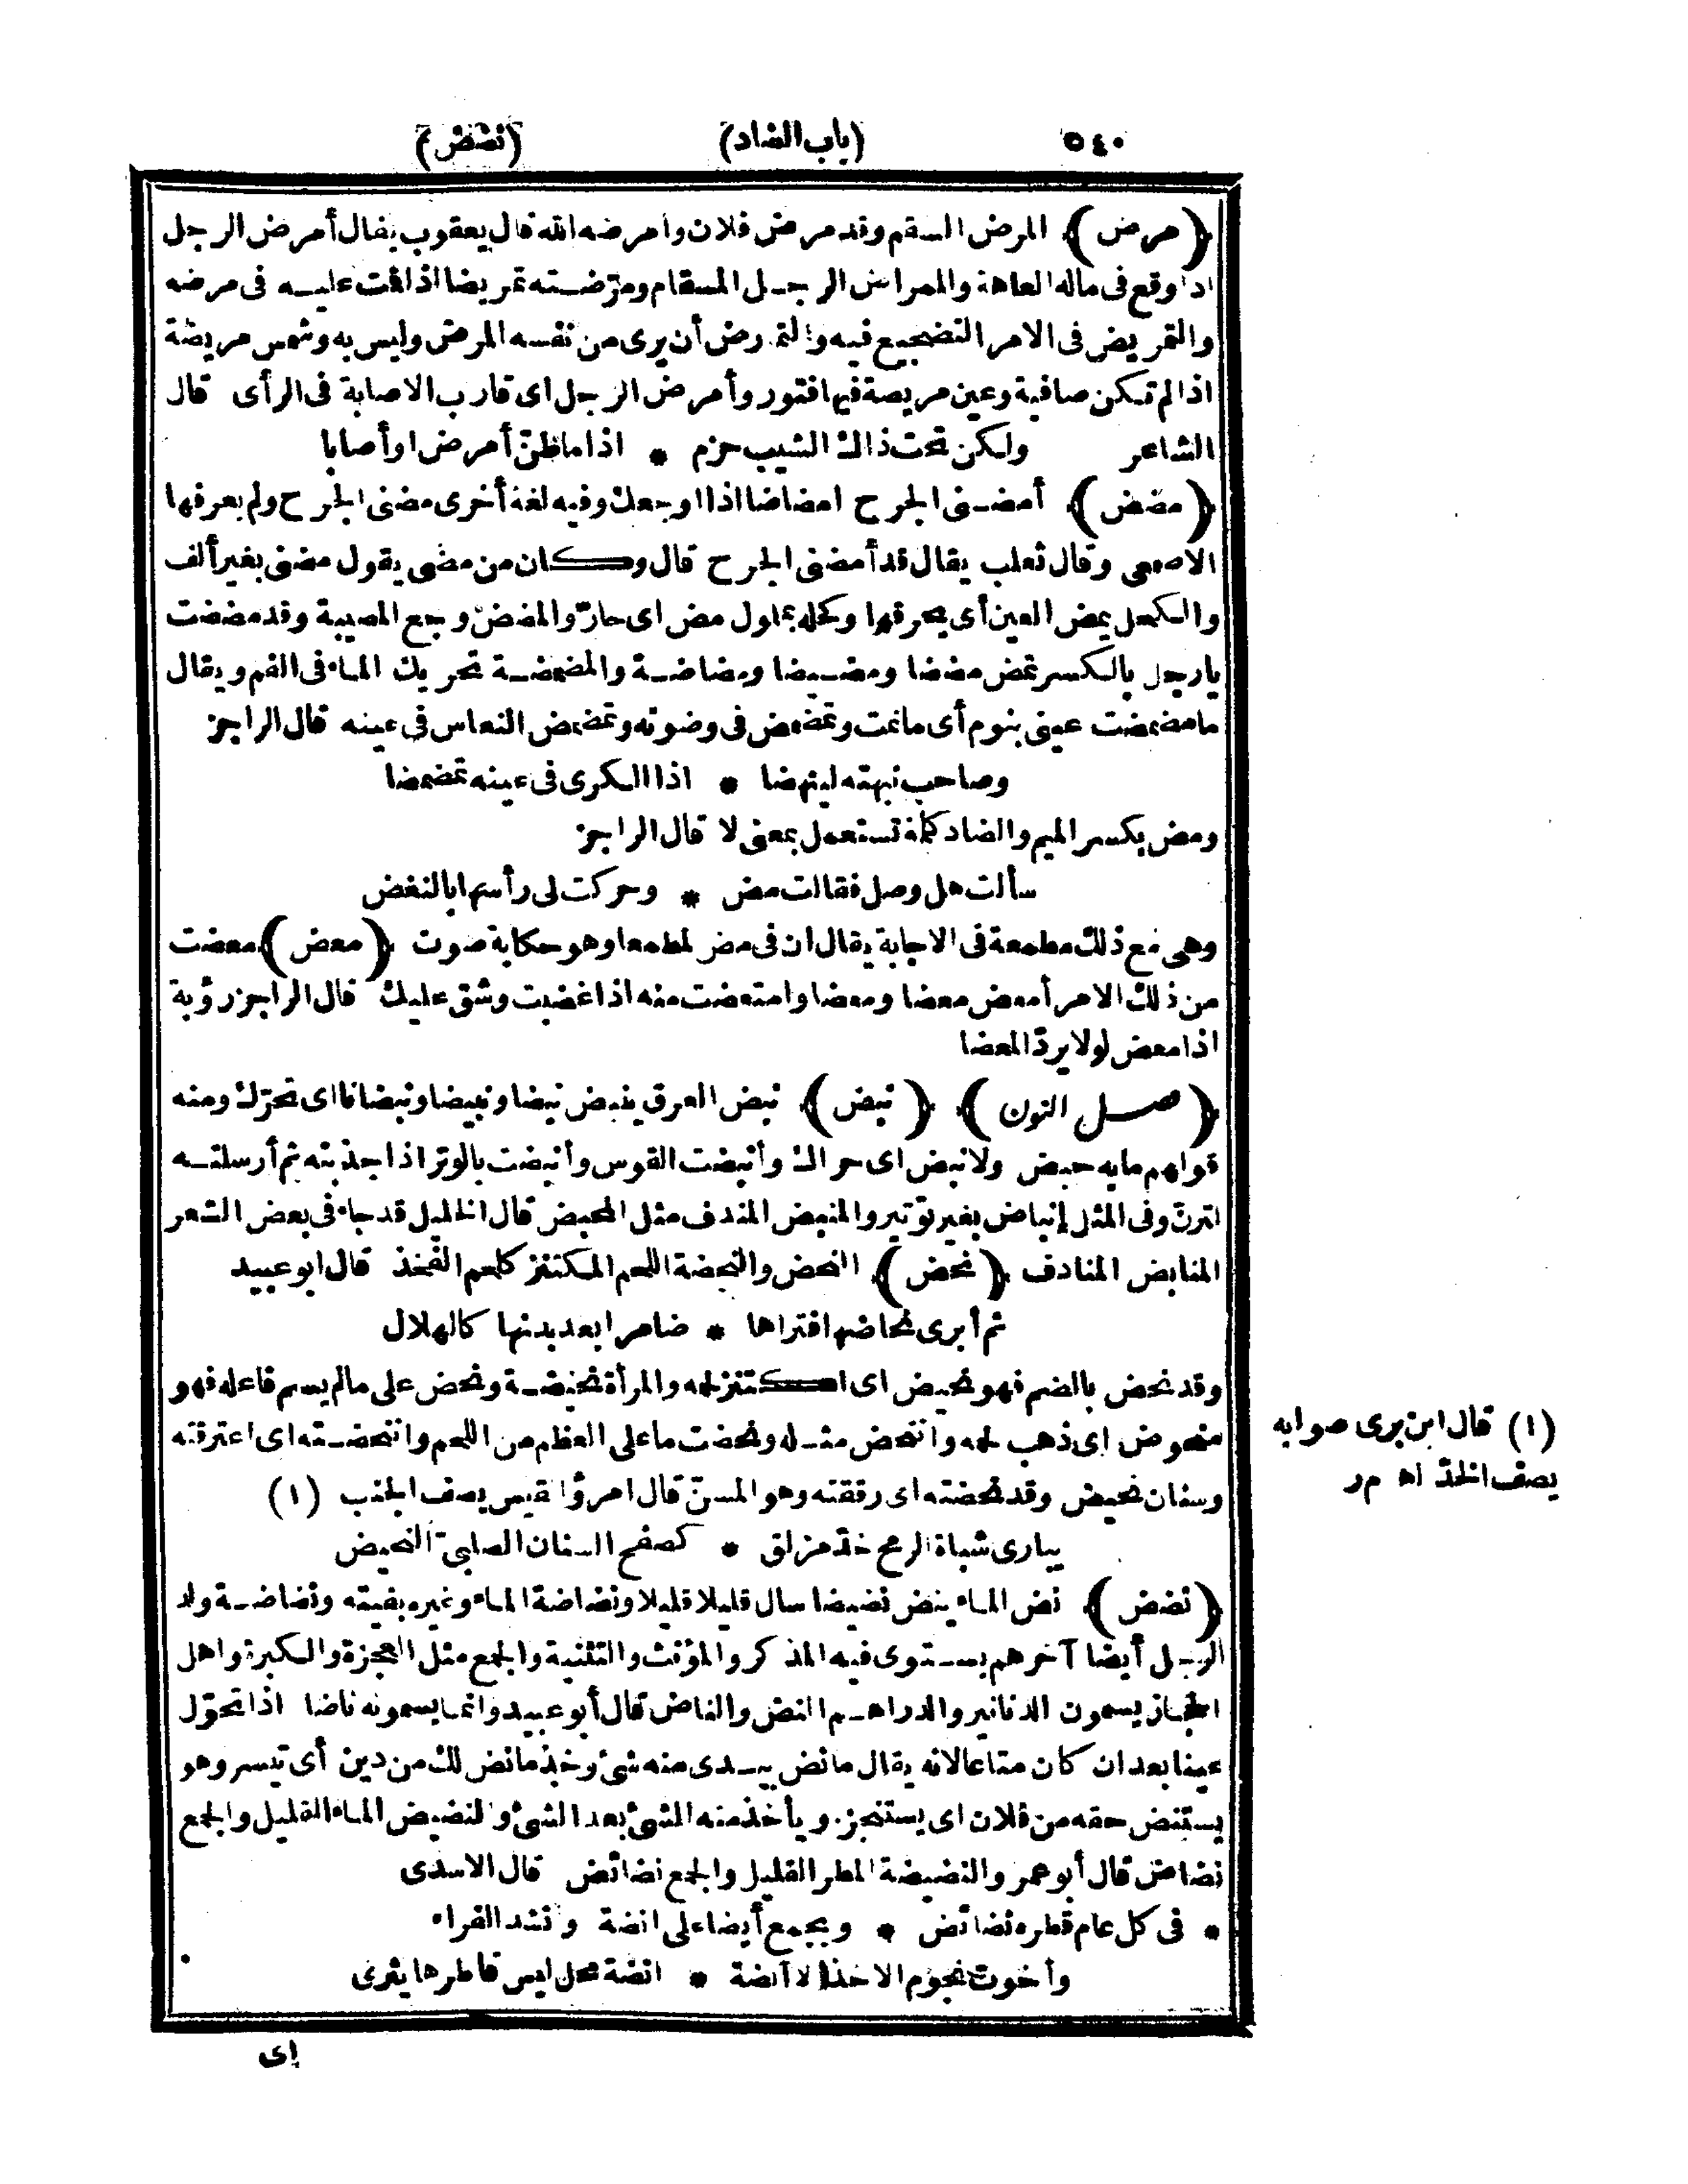 ٥٤٠ (باب الضاد) (نضض)
(مرض) المرض السقم وقد مرض فلان وأمرضه الله قال يعقوب يقال أمرض الرجل
اذا وقع فى ماله العاهة والممراض الرجل المسقام ومرّضته تمريضا اذا قمت عليه فى مرضه
والتمريض فى الامر التضجيع فيه والتمارض أن يرى من نفسه المرض وليس به وشمس مريضة
اذا لم تكن صافية وعين مريضة فيها فتور وأمرض الرجل اى قارب الاصابة فى الرأى قال
الشاعر ولكن تحت ذاك الشيب حزم * اذا ما ظنّ أمرض اوأصابا
(مضض) أمضنى الجرح امضاضا اذا اوجعك وفيه لغة أخرى مضنى الجرح ولم يعرفها
الاصمعى وقال ثعلب يقال قد أمضنى الجرح قال وكان من مضى يقول مضنى بغير ألف
والكحل يمض العين أى يحرقها وكحله بملول مض اى حارّ والمضض وجع المصيبة وقد مضضت
يارجل بالكسر تمض مضضا ومضيضا ومضاضة والمضمضة تحريك الماء فى الفم ويقال
ما مضمضت عينى بنوم أى ما نمت وتمضمض فى وضوئه وتمضمض النعاس فى عينه قال الراجز
وصاحب نبهته لينهضا * اذا الكرى فى عينه تمضمضا
ومض بكسر الميم والضاد كلمة تستعمل بمعنى لا قال الراجز
سألت هل وصل فقالت مض * وحركت لى رأسها بالنغض
وهى مع ذلك مطمعة فى الاجابة يقال ان فى مض لمطمعا وهو حكاية صوت (معض) معضت
من ذلك الامر أمعض معضا ومعضا وامتعضت منه اذا غضبت وشق عليك قال الراجز رؤبة
اذا معض لولا يردّ المعضا
(فصل النون) (نبض) نبض العرق ينبض نبضا ونبيضا ونبضانا اى تحرّك ومنه
قولهم ما به حبض ولا نبض اى حراك وأنبضت القوس وأنبضت بالوتر اذا جذبته ثم أرسلته
لترنّ وفى المثل إنباض بغير توتير والمنبض المندف مثل المحبض قال الخليل قد جاء فى بعض الشعر
المنابض المنادف (نحض) النحض والنحضة اللحم المكتنز كلحم الفخذ قال ابوعبيد
ثم أبرى نحاضها فتراها * ضامرا بعد بدنها كالهلال
وقد نحض بالضم فهو نحيض اى اكتنز لحمه والمرأة نحيضة ونحض على مالم يسم فاعله فهو
منحوض اى ذهب لحمه وانتحض مثله ونحضت ما على العظم من اللحم وانتحضته اى اعترقته
وسنان نحيض وقد نحضته اى رققته وهو المسنّ قال امرؤ القيس يصف الجنب (١)
يبارى شباة الرمح خدّ مزلق * كصفح السنان الصلبىّ النحيض
(نضض) نض الماء ينض نضيضا سال قليلا قليلا ونضاضة الماء وغيره بقيته ونضاضة ولد
الرجل أيضا آخرهم يستوى فيه المذكر والمؤنث والتثنية والجمع مثل العجزة والكبرة واهل
الحجاز يسمون الدنانير والدراهم النض والناض قال أبو عبيد وانما يسمونه ناضا اذا تحوّل
عينا بعد ان كان متاعا لانه يقال ما نض بيدى منه شئ وخذ ما نض لك من دين أى تيسر وهو
يستنض حقه من فلان اى يستنجز ويأخذ منه الشئ بعد الشئ والنضيض الماء القليل والجمع
نضاض قال أبوعمر والنضيضة المطر القليل والجمع نضائض قال الاسدى
* فى كل عام قطره نضائض * ويجمع أيضا على انضة وانشد الفراء
وأخوت نجوم الاخذ الا أنضة * انضة محل ليس قاطرها يثرى
اى
(١) قال ابن برى صوابه
يصف الخدّ اه م ر